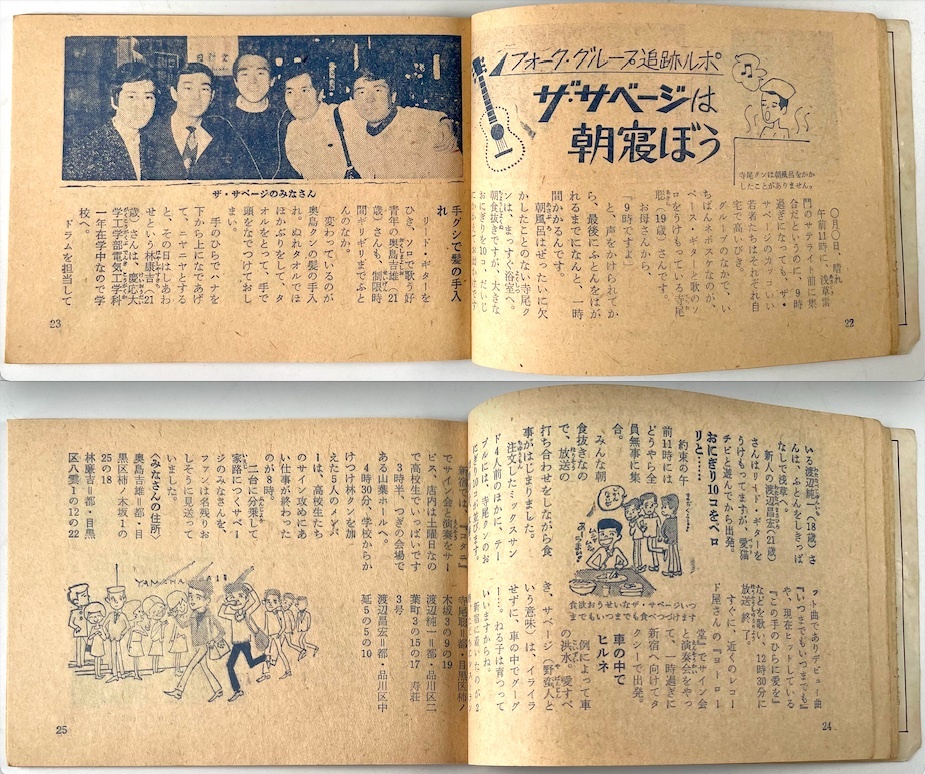 フォーク・グループ追跡ルポ
ザ・サベージは
朝寝ぼう
寺尾クンは朝風呂をかか
したことがありません。
〇月〇日、晴れ
午前11時に、浅草雷
門のサテライト前に集
合だというのに、9時
過ぎになっても、ザ・
サベージのカッコいい
若者たちはそれぞれ自
宅で高いびき。
グループのなかで、い
ちばんネボスケなのが、
ベース・ギターと歌のソ
ロをうけもっている寺尾
聡(19歳)さんです。
お母さんから、
「9時ですよ」
と、声をかけられてか
ら、最後にふとんをはが
れるまでになんと、一時
間かかるんです。
朝風呂はぜったいに欠
かしたことのない寺尾ク
ンは、まっすぐ浴室へ。
朝食抜きですが、大きな
おにぎりを10コ、だいじ
22
ザ・サベージのみなさん
手グシで髪の手入
れ
リード・ギターを
ひき、ソロで歌う好
青年の奥島吉雄(21
歳)さんも、制限時
間ギリギリまでふと
んのなか。
変わっているのが
奥島クンの髪の手入
れ。ぬれタオルでほ
ほかぶりをして、タ
オルをとって、手で
頭をなでつけておし
まい。
手のひらでハナを
下から上になであげ
て、ニヤニヤとする
と、その日はしあわ
せという林廉吉(21
歳)さんは、慶応大
学工学部電気工学科
一年在学中なので学
校へ。
ドラムを担当して
23
いる渡辺純一(18歳)さ
んは、ふとんをしきっぱ
なしで浅草へ。
新人の渡辺昌宏(21歳)
さんはリード・ギターを
うけもってますが、愛猫
チビと遊んでから出発。
おにぎり10コをペロ
リと……
約束の午
前11時には
どうやら全
員無事に集
合。
みんな朝
食抜きなの
で、放送の
打ち合わせをしながら食
事がはじまりました。
注文したミックスサン
ド4人前のほかに、テー
ブルには、寺尾クンのお
食欲おうせいなザ・サベージいつ
までもいつまでも食べつづけます
ット曲でありデビュー曲
『いつまでもいつまでも』
や、現在ヒットしている
『この手のひらに愛を』
などを歌い、12時30分に
放送終了。
すぐに、近くのレコー
ド屋さんの『ヨーロー
堂』でサイン会
と演奏会をやっ
て、一時過ぎに
新宿へ向けてタ
クシーで出発。
車の中で
ヒルネ
例によって車
の洪水。愛すべ
き、サベージ(野蛮人と
いう意味)は、イライラ
せずに、車の中でグーグ
ー……。ねる子は育つって
いいますからね。
24
でサイン会と演奏をサー
ビス、店内は土曜日なの
で高校生でいっぱいです
3時半、つぎの会場で
ある山葉ホールへ。
4時30分、学校からか
けつけ林クンを加
えた5人のメンバ
ーは、高校生たち
のサイン攻めにあ
い仕事が終わった
のが8時。
二台に分乗して
家路につくサベー
ジのみなさんを、
ファンは名残りお
しそうに見送って
いました。
〈みなさんの住所〉
奥島吉雄=都・目
黒区柿ノ木坂1の
25の18
林廉吉=都・目黒
区八雲1の12の22
木坂3の9の19
渡辺純一=都・品川区二
葉町3の15の17 寿荘
3号
渡辺昌宏=都・品川区中
延5の5の10
YAMAHA
25